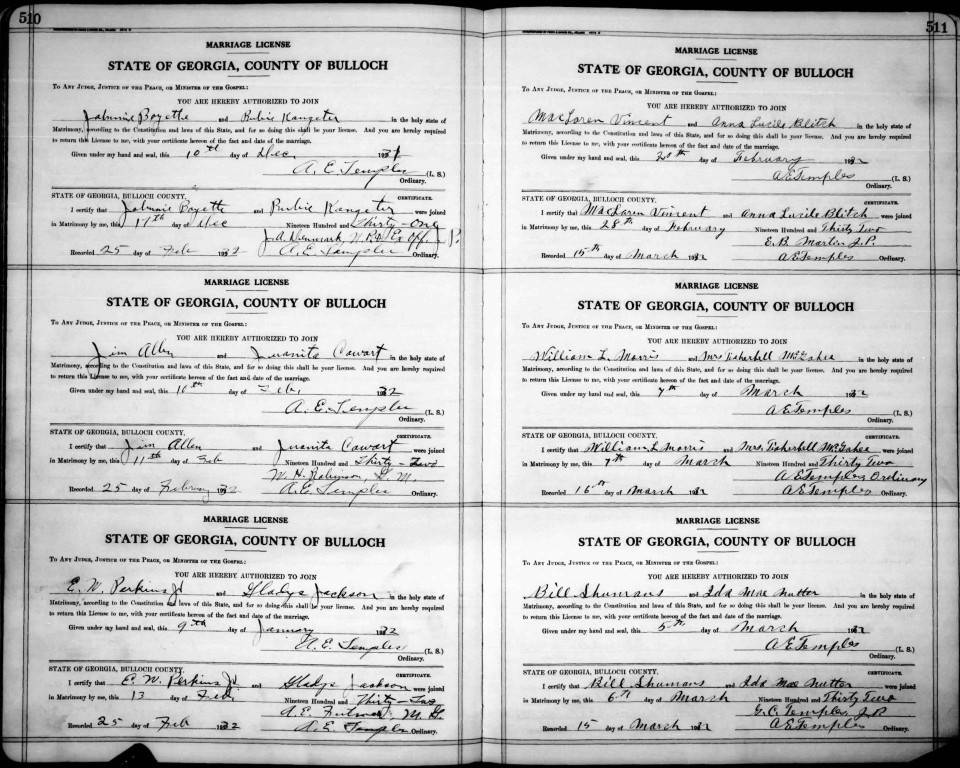 510
MARRIAGE LICENSE
STATE OF GEORGIA, COUNTY OF BULLOCH
To Any Judge, Justice of the Peace, or Minister of the Gospel:
YOU ARE HEREBY AUTHORIZED TO JOIN
Johnnie Boyette and Rubie Kangeter in the holy state of
Matrimony, according to the Constitution and laws of this State, and for so doing this shall be your license. And you are hereby required
to return this License to me, with your certificate hereon of the fact and date of the marriage.
Given under my hand and seal, this 10th day of Dec, 1931
A. E. Temples (L. S.)
Ordinary.
STATE OF GEORGIA, BULLOCH COUNTY. CERTIFICATE.
I certify that Johnnie Boyett and Rubie Kangeter were joined
in Matrimony by me, this 17th day of Dec Nineteen Hundred and Thirty-One
J. A.
Recorded 25 day of Feb 1932 A. E. Temples Ordinary.
MARRIAGE LICENSE
STATE OF GEORGIA, COUNTY OF BULLOCH
To Any Judge, Justice of the Peace, or Minister of the Gospel:
YOU ARE HEREBY AUTHORIZED TO JOIN
Jim Allen and Juanita Cowart in the holy state of
Matrimony, according to the Constitution and laws of this State, and for so doing this shall be your license. And you are hereby required
to return this License to me, with your certificate hereon of the fact and date of the marriage.
Given under my hand and seal, this 10th day of Feb, 1932
A. E. Temples (L. S.)
Ordinary.
STATE OF GEORGIA, BULLOCH COUNTY. CERTIFICATE.
I certify that Jim Allen and Juanita Cowart were joined
in Matrimony by me, this 11th day of Feb Nineteen Hundred and Thirty-Two
W. H. Robinson,
Recorded 25 day of Februay 1932 A. E. Temples Ordinary.
MARRIAGE LICENSE
STATE OF GEORGIA, COUNTY OF BULLOCH
To Any Judge, Justice of the Peace, or Minister of the Gospel:
YOU ARE HEREBY AUTHORIZED TO JOIN
E. W. Perkins Jr and Gladys Jackson in the holy state of
Matrimony, according to the Constitution and laws of this State, and for so doing this shall be your license. And you are hereby required
to return this License to me, with your certificate hereon of the fact and date of the marriage.
Given under my hand and seal, this 9th day of January 1932
A. E. Temples (L. S.)
Ordinary.
STATE OF GEORGIA, BULLOCH COUNTY. CERTIFICATE.
I certify that E. W. Perkins Jr and Gladys Jackson were joined
in Matrimony by me, this 13 day of Feb, Nineteen Hundred and Thirty-Two
A. E. M. G.
Recorded 25 day of Feb 1932 A. E. Temples Ordinary.
511
MARRIAGE LICENSE
STATE OF GEORGIA, COUNTY OF BULLOCH
To Any Judge, Justice of the Peace, or Minister of the Gospel:
YOU ARE HEREBY AUTHORIZED TO JOIN
MacLoren Vincent and Anna Lucile Blitch in the holy state of
Matrimony, according to the Constitution and laws of this State, and for so doing this shall be your license. And you are hereby required
to return this License to me, with your certificate hereon of the fact and date of the marriage.
Given under my hand and seal, this 28th day of February 1932
A E Temples (L. S.)
Ordinary.
STATE OF GEORGIA, BULLOCH COUNTY. CERTIFICATE.
I certify that MacLaren Vincent and Anna Lucile Blitch were joined
in Matrimony by me, this 28th day of February Nineteen Hundred and Thirty Two
E. B. Martin J. P.
Recorded 15th day of March 1932 A E Temples Ordinary.
MARRIAGE LICENSE
STATE OF GEORGIA, COUNTY OF BULLOCH
To Any Judge, Justice of the Peace, or Minister of the Gospel:
YOU ARE HEREBY AUTHORIZED TO JOIN
William L. Morris and Mrs in the holy state of
Matrimony, according to the Constitution and laws of this State, and for so doing this shall be your license. And you are hereby required
to return this License to me, with your certificate hereon of the fact and date of the marriage.
Given under my hand and seal, this 7th day of March 1932
A E Temples (L. S.)
Ordinary.
STATE OF GEORGIA, BULLOCH COUNTY. CERTIFICATE.
I certify that William L Morris and Mrs were joined
in Matrimony by me, this 7th day of March Nineteen Hundred and Thirty Two
A E Temples, Ordinary
Recorded 15th day of March 1932 A E Temples Ordinary.
MARRIAGE LICENSE
STATE OF GEORGIA, COUNTY OF BULLOCH
To Any Judge, Justice of the Peace, or Minister of the Gospel:
YOU ARE HEREBY AUTHORIZED TO JOIN
Bill Shumans and Ida Mae Nutter in the holy state of
Matrimony, according to the Constitution and laws of this State, and for so doing this shall be your license. And you are hereby required
to return this License to me, with your certificate hereon of the fact and date of the marriage.
Given under my hand and seal, this 5th day of March 1932
A E Temples (L. S.)
Ordinary.
STATE OF GEORGIA, BULLOCH COUNTY. CERTIFICATE.
I certify that Bill Shumans and Ida Mae Nutter were joined
in Matrimony by me, this 6th day of March Nineteen Hundred and Thirty Two
G. C. Temples, J. P.
Recorded 15 day of March 1932 A E Temples Ordinary.